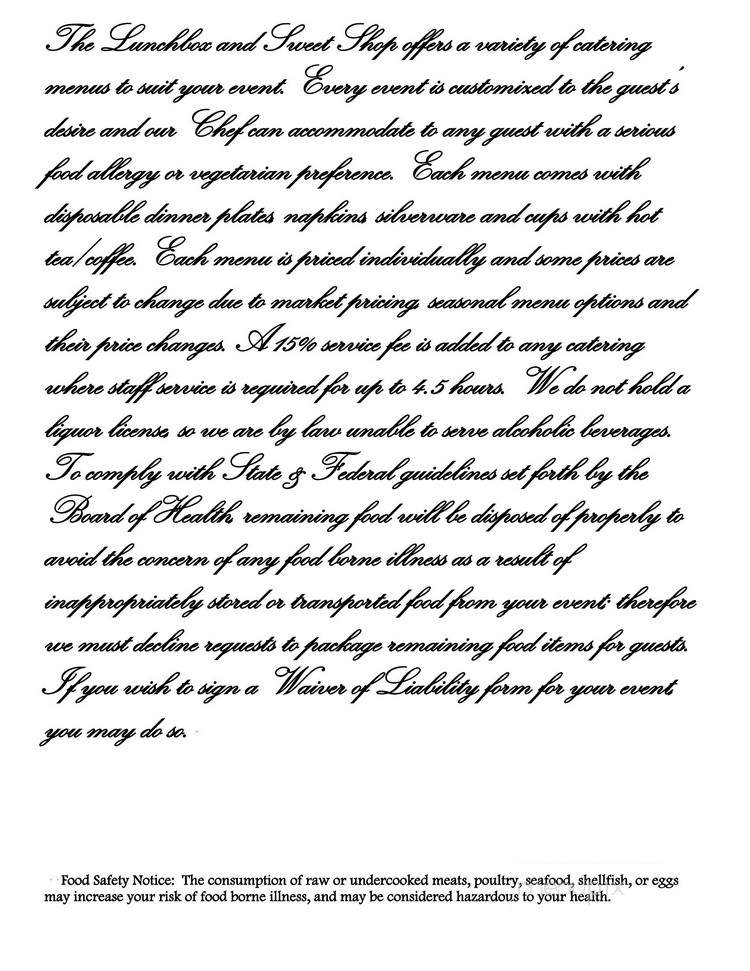 The Lunchbox and Sweet Shop offers a variety of catering
menus to suit your event. Every event is customized to the guest's
desire and our Chef can accommodate to any guest with a serious
food allergy or vegetarian preference. Each menu comes with
disposable dinner plates, napkins, silverware and cups with hot
tea/coffee. Each menu is priced individually and some prices are
subject to change due to market pricing, seasonal menu options and
their price changes. A 15% service fee is added to any catering
where staff service is required for up to 4.5 hours. We do not hold a
liquor license, so we are by law unable to serve alcoholic beverages.
To comply with State & Federal guidelines set forth by the
Board of Health, remaining food will be disposed of properly to
avoid the concern of any food borne illness as a result of
inappropriately stored or transported food from your event; therefore
we must decline requests to package remaining food items for guests.
If you wish to sign a Waiver of Liability form for your event,
you may do so.
Food Safety Notice: The consumption of raw or undercooked meats, poultry, seafood, shellfish, or eggs
may increase your risk of food borne illness, and may be considered hazardous to your health.